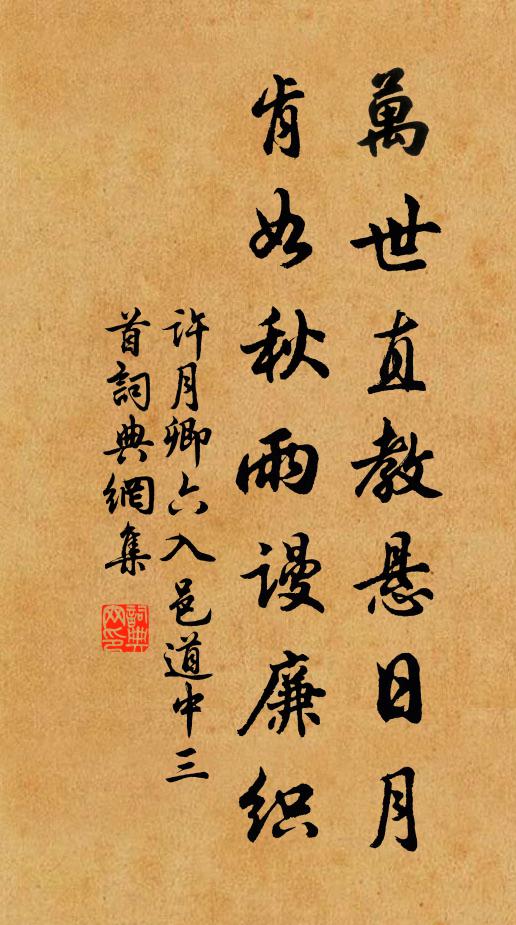 萬世直教悬日月
肯如秋雨謾廉织
许月卿六入邑道中三
首詞典網集
詞典网印